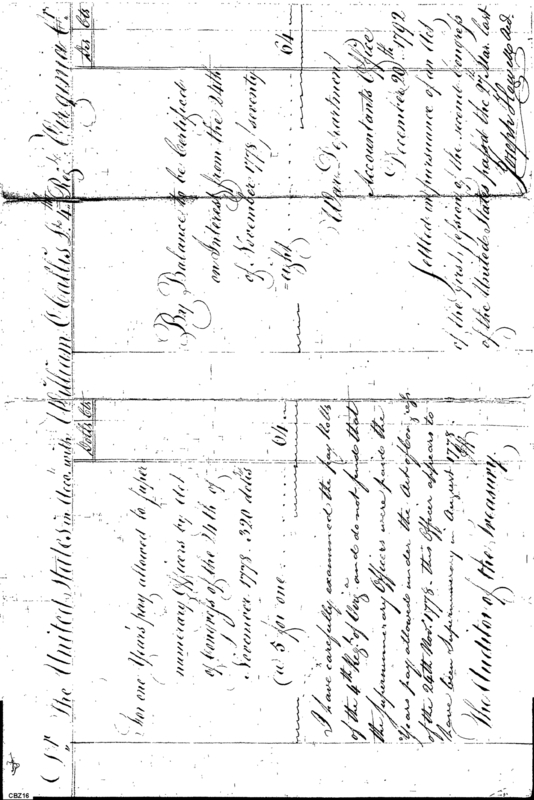 Dr. The United States in Acco. with William O Callis Lt. 4th Regt. Virginia Cr.
Dolls Cts
For one Years pay allowed to super
numerary Officers by Act
of Congress of the 24th of
November 1778. 320 dolls
@ 5 for one ..... 64
I have carefully examined the pay Rolls
of the 4th Regt. of Virga. and do not find that
the supernumerary Officers were paid the
Years pay allowed under the Act of Congress
of the 24th Novr. 1778 - this Officer appears to
have been supernumerary in August 1778.
The Auditor of the Treasury.
Dos Cts
By Balance to be Certified
on Interest from the 24th
of November 1778 / seventy
=eight ) ..... 64
War Department
Accountants Office
December 20th. 1792
Settled in pursuance of an Act
of the first session of the second Congress
of the United States passed the 27 Mar. last
Joseph Howell Acct.
CBZ16